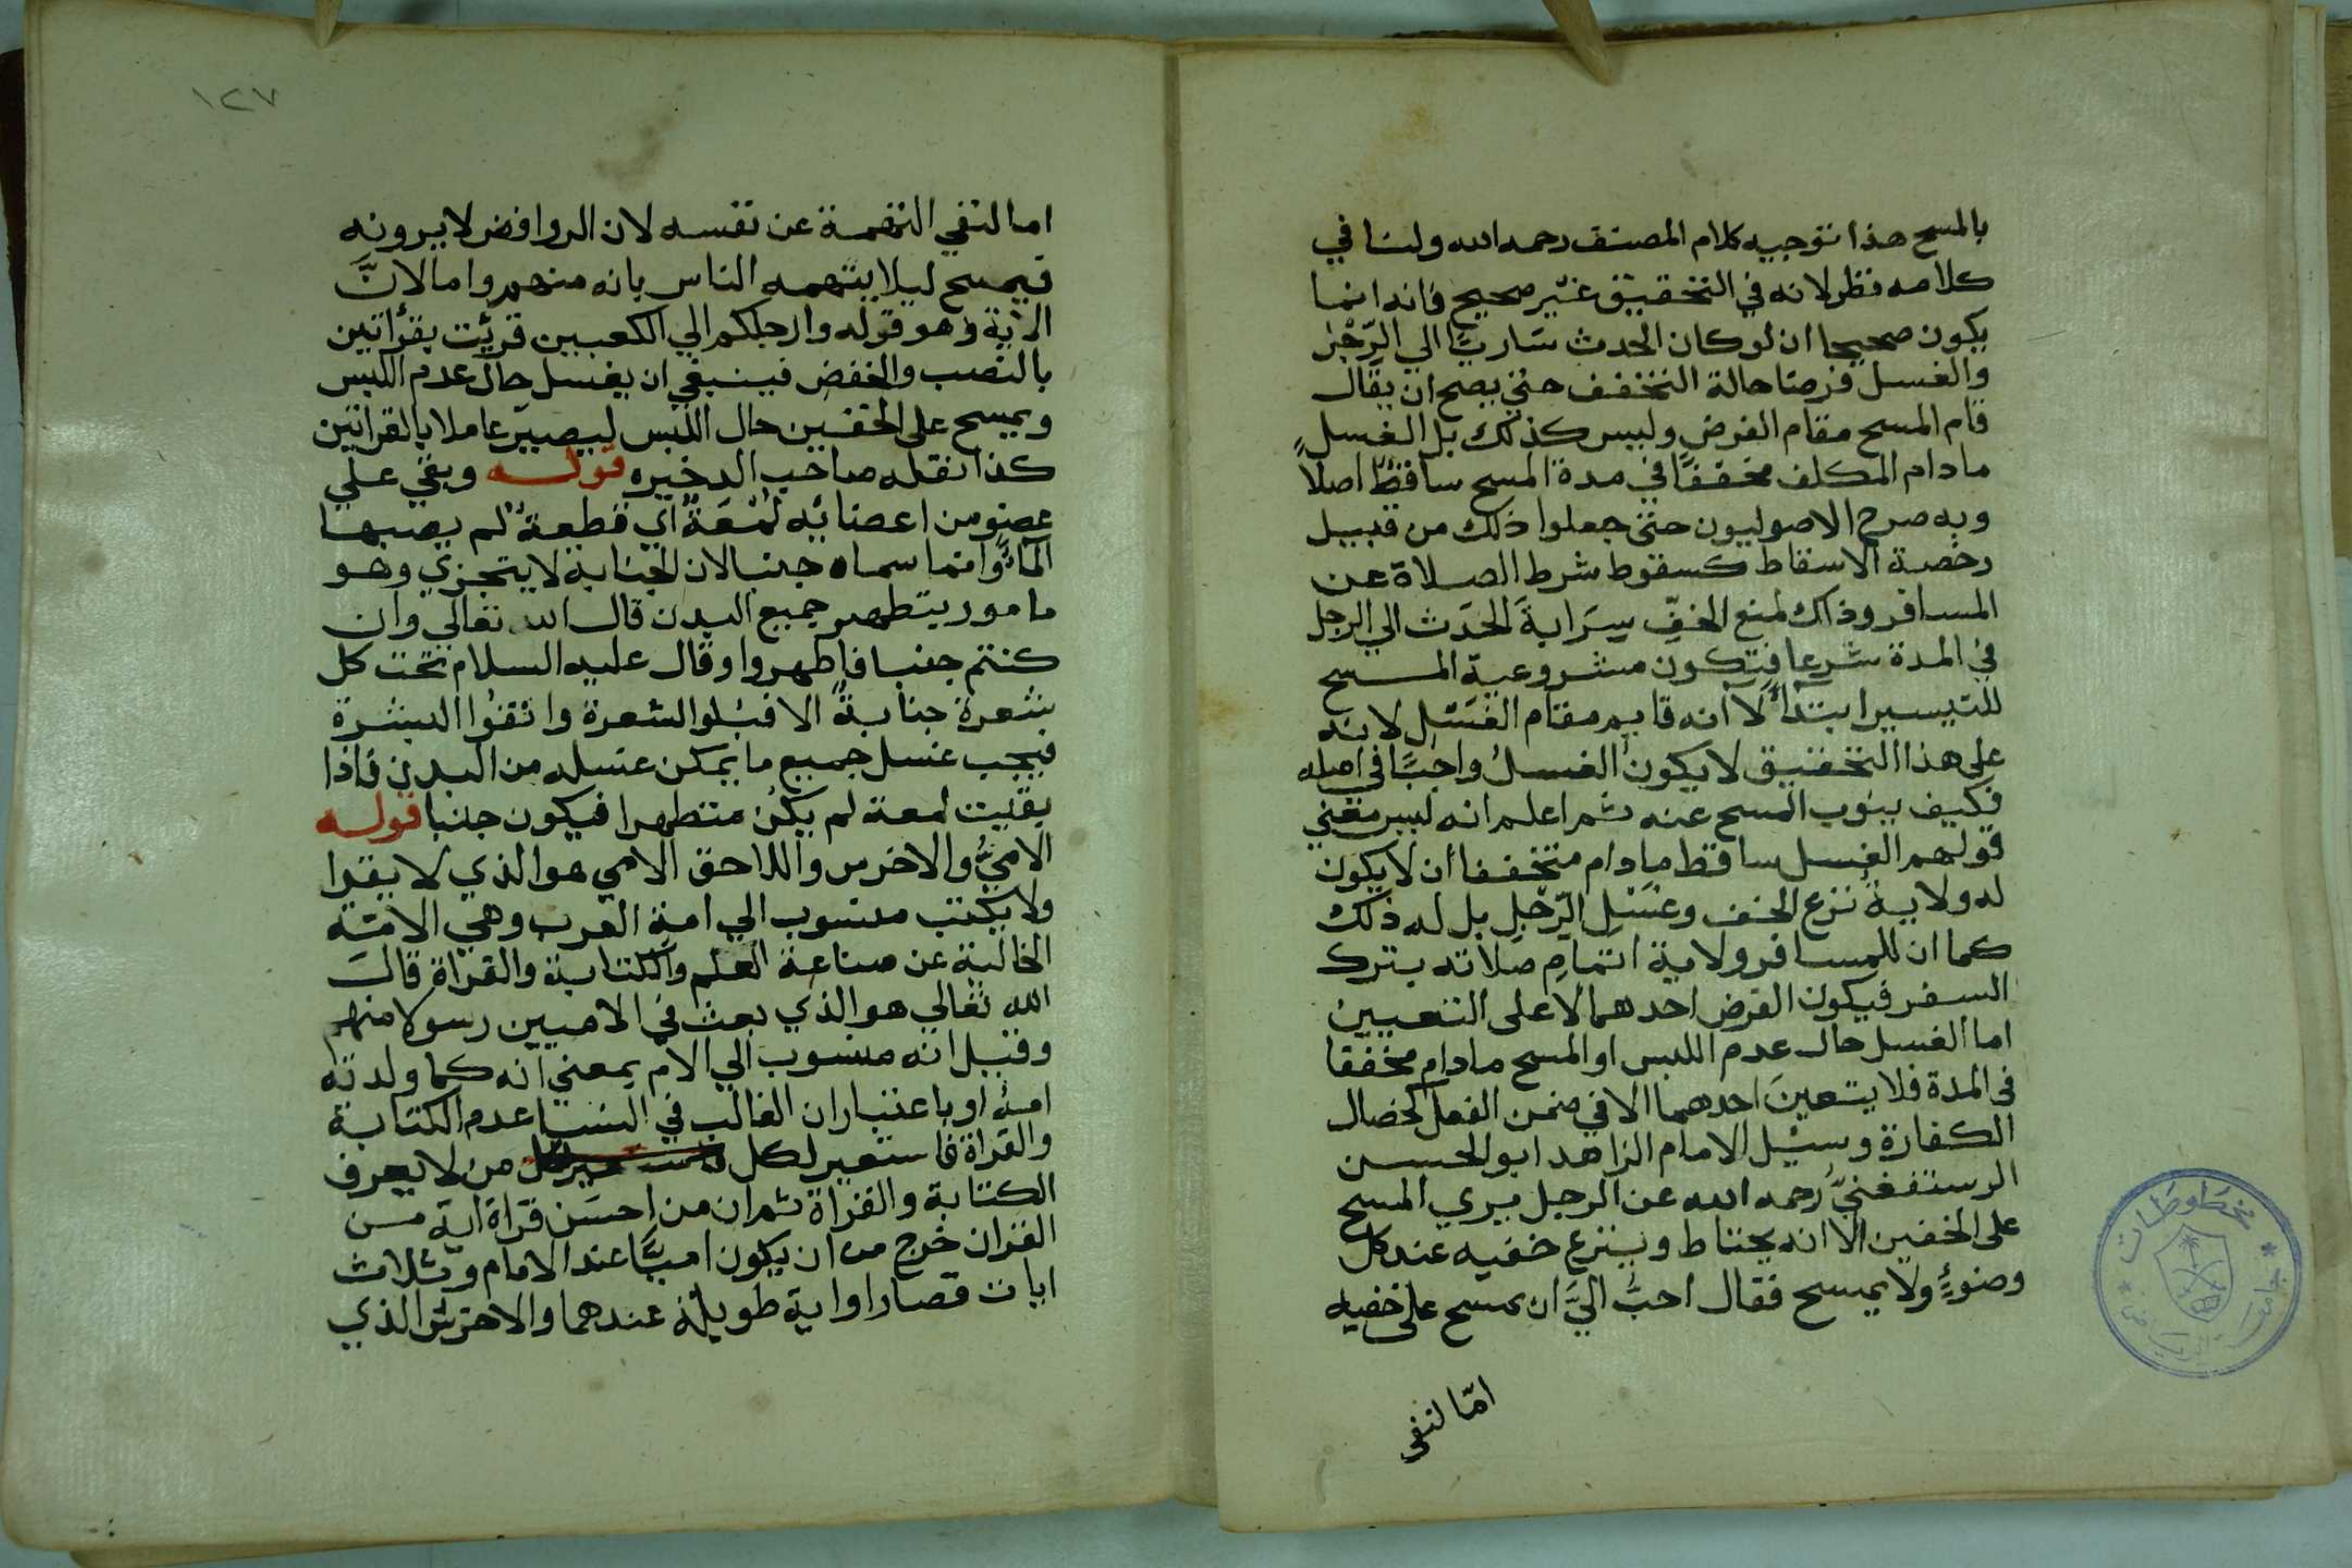 بالمسح هذا توجيه كلام المصنف رحمه الله ولنا في
كلامه نظر لانه في التحقيق غير صحيح فانه انما
يكون صحيحا ان لو كان الحدث ساريًا الي الرّجل
والغسل فرضا حالة التخفف حتي يصح ان يقال
قام المسح مقام الفرض وليس كذلك بل الغسل
مادام المكلف مخففًا في مدة المسح ساقطٌ اصلاً
وبه صرح الاصوليون حتى جعلوا ذلك من قبيل
رخصة الاسقاط كسقوط شرط الصلاة عن
المسافر وذاك لمنع الخفِّ سِرَايةَ الحَدَث الي الرجل
في المدة شرعا فتكون مشروعية المسح
للتيسير ابتدأً لا انه قايم مقام الغَسْل لانه
على هذا التحقيق لا يكون الغسلُ واجبًا في اصله
فكيف ينوب المسح عنه ثم اعلم انه ليس معني
قولهم الغسل ساقط مادام متخففا ان لا يكون
له ولاية نزع الخف وغَسْلِ الرّجلِ بل له ذلك
كما ان للمسافر ولاية اتمامِ صلاته بترك
السفر فيكون الفرض احدهما لا على التعيين
اما الغسل حال عدم اللبس او المسح مادام مخففا
في المدة فلا يتعين احدهما الا في ضمن الفعل كخصال
الكفارة وسئل الامام الزاهد ابو الحسن
الرستفغنيُّ رحمه الله عن الرجل يري المسح
على الخفين الا انه يحتاط وينزع خفيه عند كل
وضوءٍ ولا يمسح فقال احبُّ اليَّ ان يمسح على خفيه
امّا لنفى
١٢٧
اما لنفي التهمة عن نفسه لان الروافض لا يرونه
فيمسح ليلا يتهمه الناس بانه منهم واما لانَّ
الاية وهو قوله وارجلكم الي الكعبين قرئت بقرأتين
بالنصب والخفض فينبغي ان يغسل حال عدم اللبس
ويمسح على الخفين حال اللبس ليصير عاملا بالقراتين
كذا نقله صاحب الدخيره قوله وبقي على
عضو من اعضائه لُمْعَةٌ اي قطعةٌ لم يصبها
الماءُ وانما سماه جنبا لان الجنابة لا يتجزي وهو
مامور يتطهر جميع البدن قال الله تعالي وان
كنتم جنبا فاطهروا وقال عليه السلام تحت كل
شعرة جنابةٌ الا فبلوا الشعرة وانقوا البشرة
فيجب غسل جميع ما يمكن غسله من البدن فاذا
بقيت لمعة لم يكن متطهرا فيكون جنبا قوله
الاميُّ والاخرس واللاحق الامي هو الذي لا يقرا
ولا يكتب منسوب الي امة العرب وهي الامّة
الخالية عن صناعة العلم والكتابة والقراة قال
الله تعالي هو الذي بعث في الاميين رسولا منهم
وقيل انه منسوب الي الام بمعني انه كما ولدته
امه او باعتبار ان الغالب في النسا عدم الكتابة
والقراة فاستعير لكل من لا يعرف
الكتابة والقراة ثم ان من احسن قراة اية من
القران خرج من ان يكون اميًّا عند الامام وبثلاث
ايات قصار او اية طويلة عندهما والاخرس الذي
مخطوطات